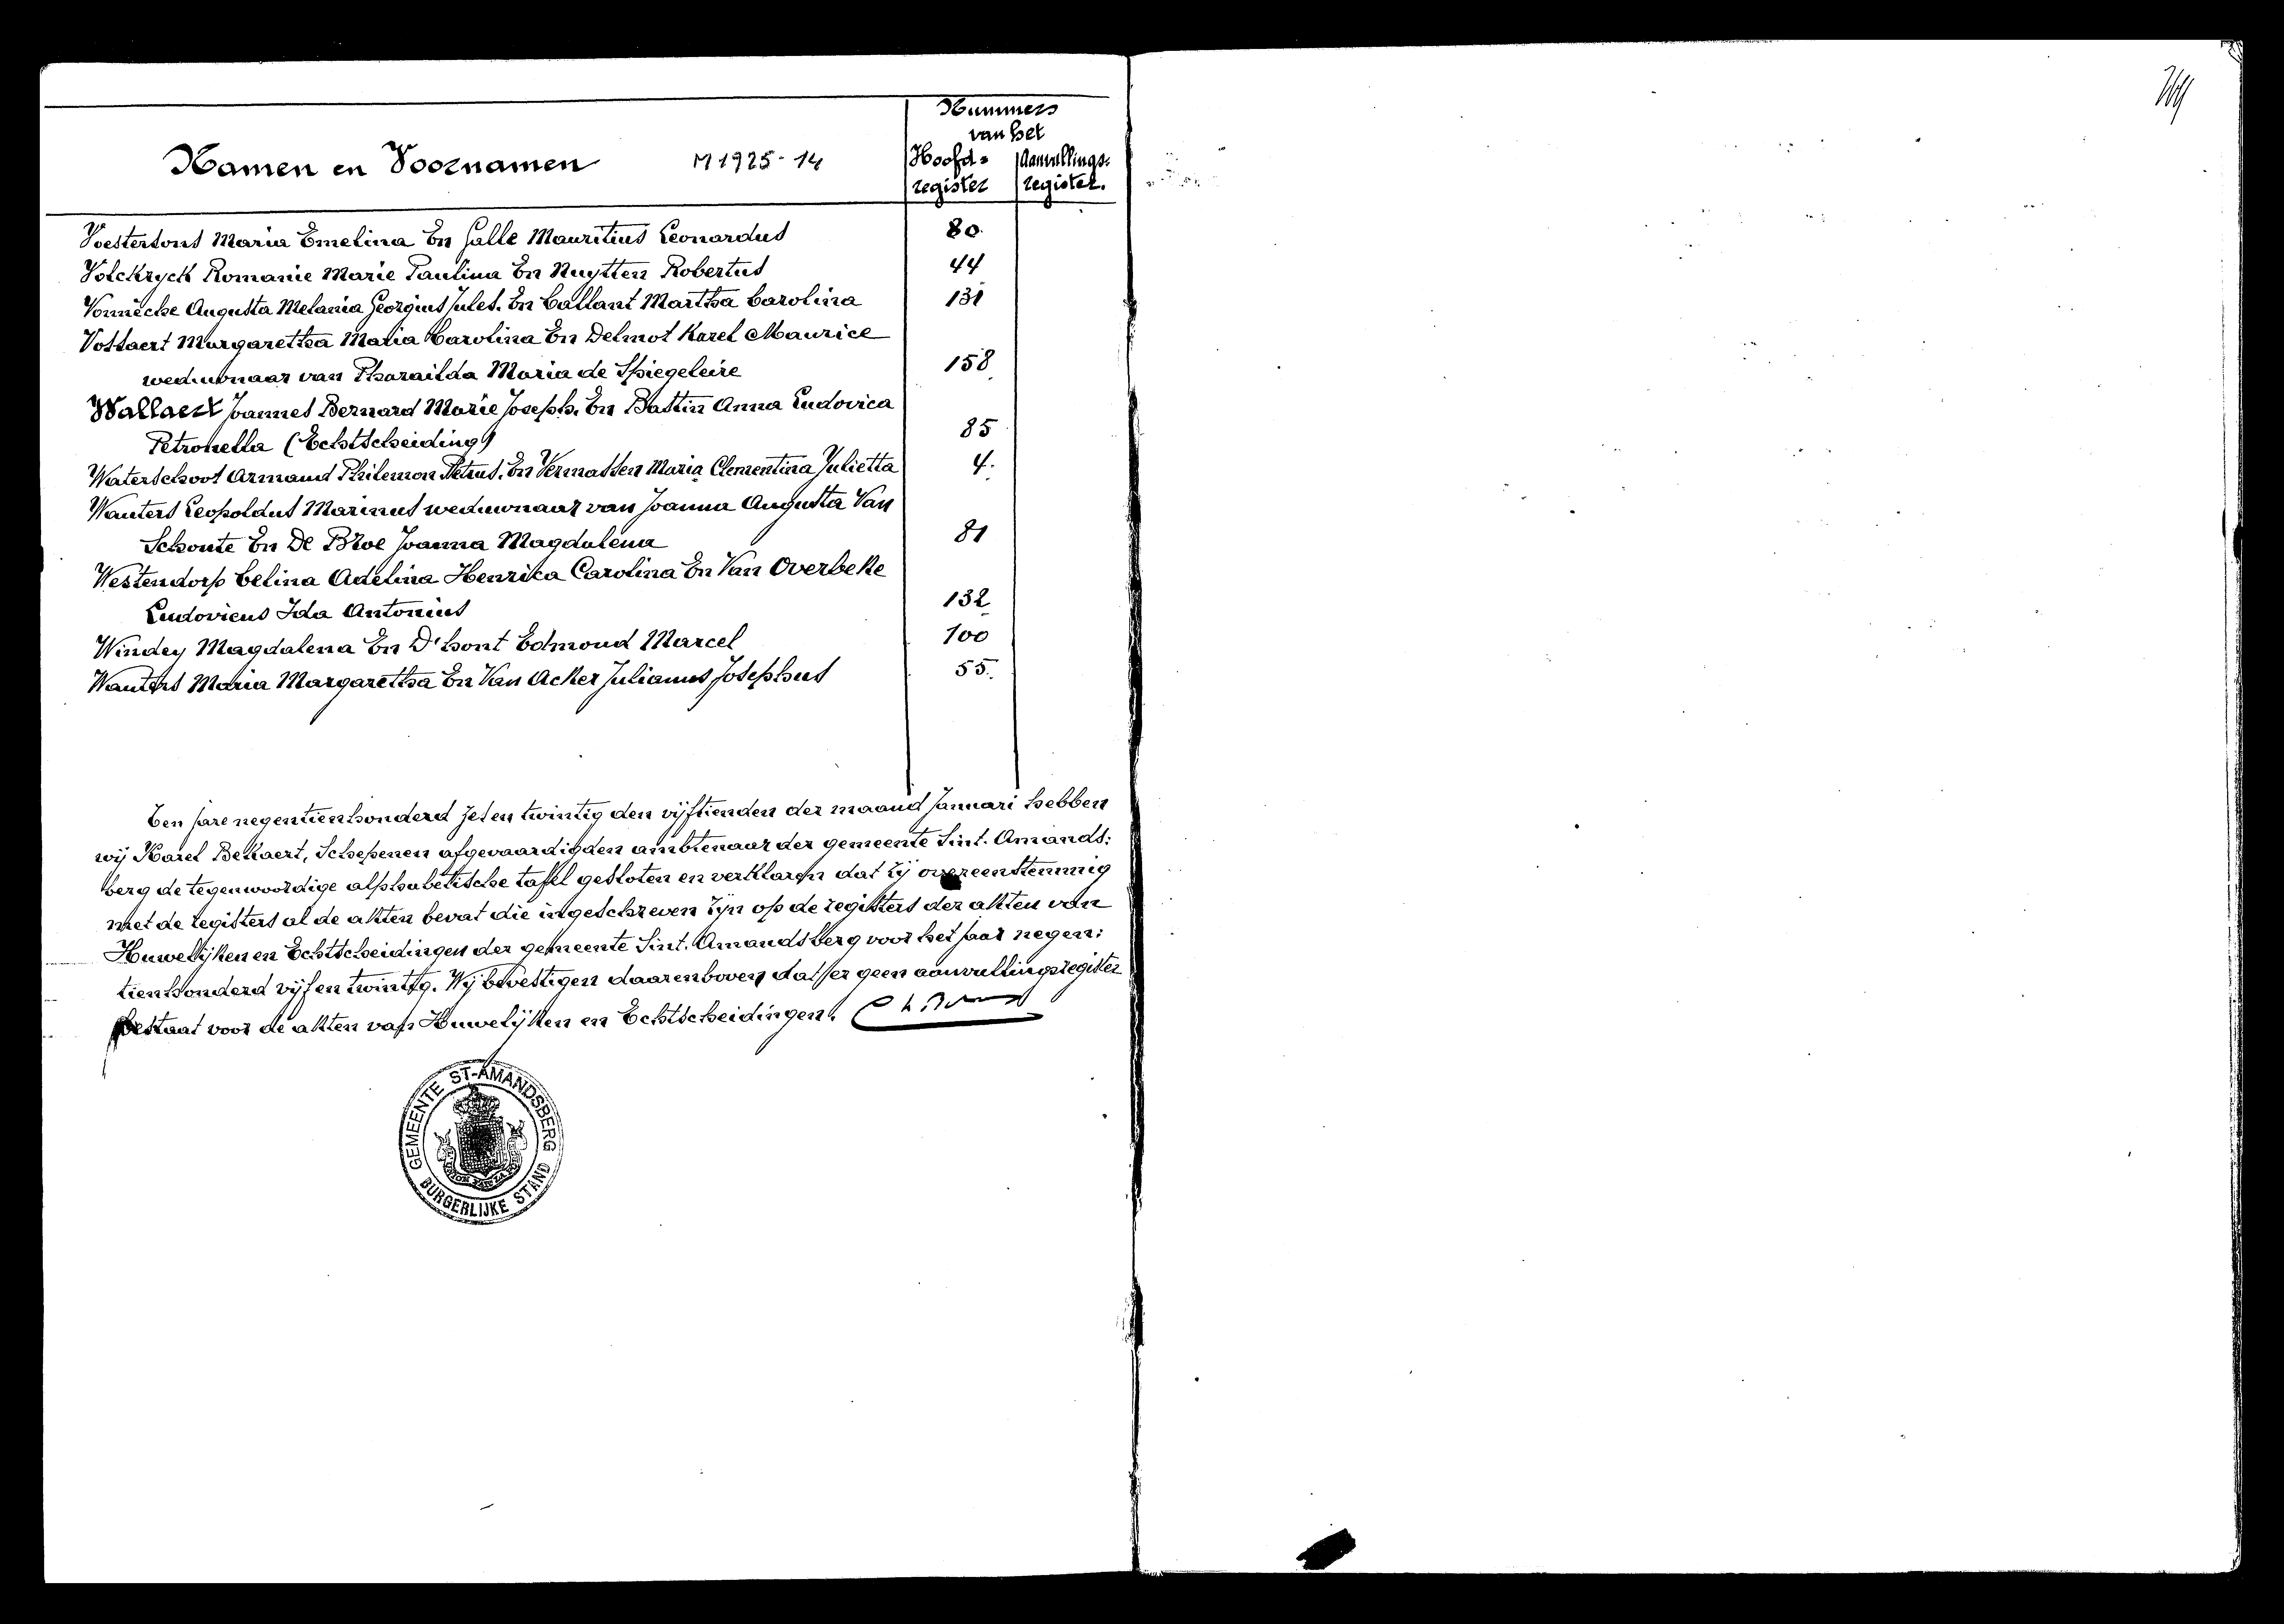 Nummers
van het
Namen en Voornamen M 1925-14 Hoofd= Aanvullings=
register register.
Voestertons Maria Emelina En Galle Mauritius Leonardus 80.
Volckryck Romanie Marie Paulina En Nuytten Robertus 44
Vonnêche Augusta Melania Georgius Jules. En Callant Martha Carolina 131
Vossaert Margaretha Maria Carolina En Delmot Karel Maurice
weduwnaar van Pharaïlda Maria de Spiegeleire 158
Wallaert Joannes Bernard Marie Joseph. En Bastin Anna Ludovica
Petronella (Echtscheiding) 85
Waterschoot Armand Philemon Petrus. En Vermassen Maria Clementina Julietta 4.
Wauters Leopoldus Marinus weduwnaar van Joanna Augusta Van
Schoute En De Broe Joanna Magdalena 81
Westendorp Celina Adelina Henrika Carolina En Van Overbeke
Ludovicus Ida Antonius 132
Windey Magdalena En D'hont Edmond Marcel 100
Wauters Maria Margaretha En Van Acker Julianus Josephus 55.
Ten jare negentienhonderd zes en twintig den vijftienden der maand Januari hebben
wij Karel Bekaert, Schepenen afgevaardigden ambtenaar der gemeente Sint. Amands=
berg de tegenwoordige alphabetische tafel gesloten en verklaren dat zij overeenstemmig
met de registers al de akten bevat die ingeschreven zijn op de registers der akten van
Huwelijken en Echtscheidingen der gemeente Sint. Amandsberg voor het jaar negen=
tienhonderd vijf en twintig. Wij bevestigen daarenboven dat er geen aanvullingsregister
bestaat voor de akten van Huwelijken en Echtscheidingen.
GEMEENTE ST-AMANDSBERG
BURGERLIJKE STAND